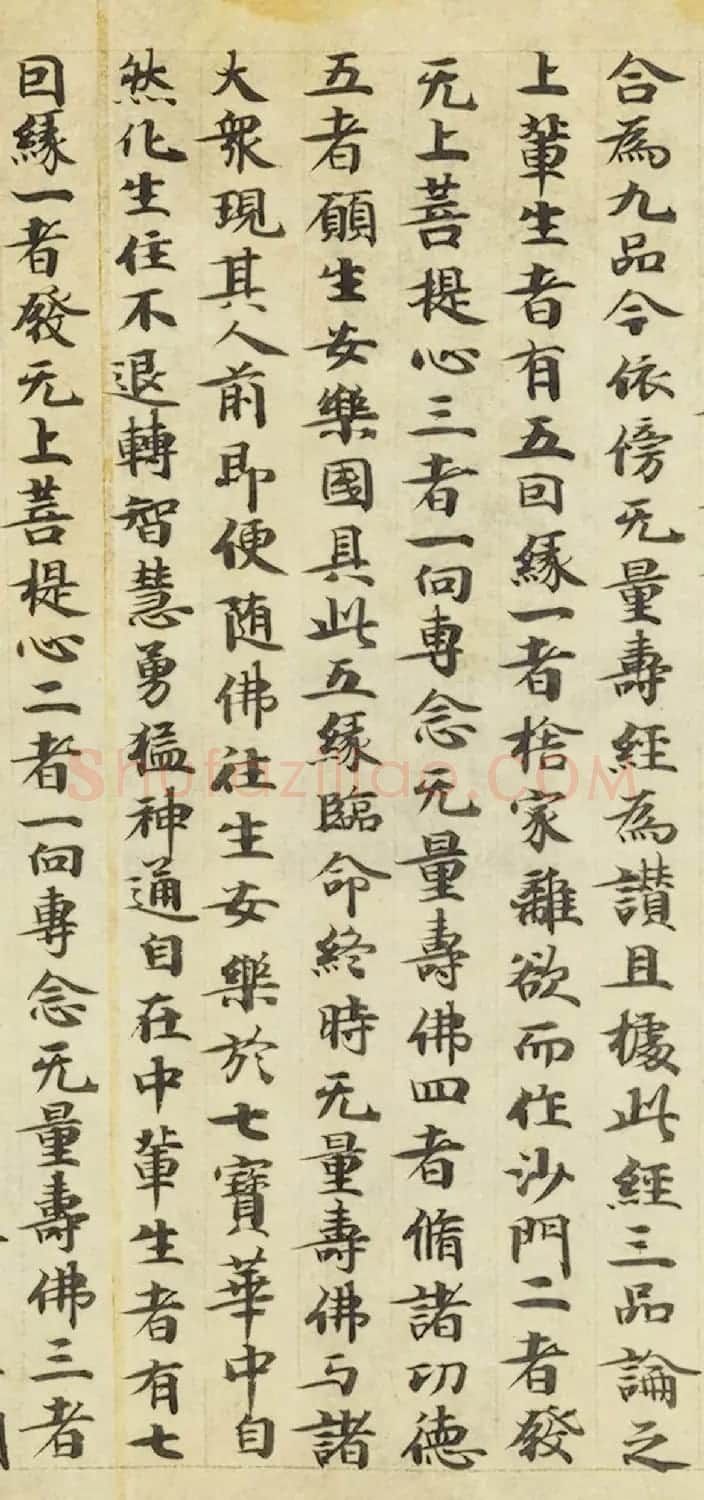 合為九品今依傍无量壽經為讃且據此經三品論之
上軰生者有五囙緣一者捨家離欲而作沙門二者發
无上菩提心三者一向專念无量壽佛四者脩諸功德
五者願生安樂國具此五緣臨命終時无量壽佛与諸
大衆現其人前即便隨佛往生安樂於七寶華中自
然化生住不退轉智慧勇猛神通自在中軰生者有七
囙緣一者發无上菩提心二者一向專念无量壽佛三者
shufaziliao.com